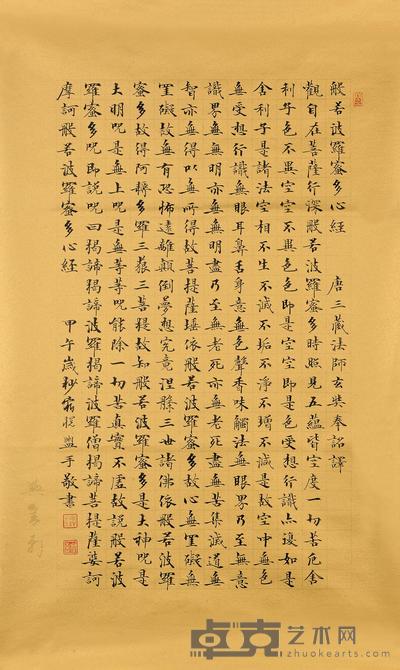 般若波羅蜜多心經 唐三藏法師玄奘奉詔譯
觀自在菩薩行深般若波羅蜜多時照見五蘊皆空度一切苦厄舍
利子色不異空空不異色色即是空空即是色受想行識亦復如是
舍利子是諸法空相不生不滅不垢不淨不增不減是故空中無色
無受想行識無眼耳鼻舌身意無色聲香味觸法無眼界乃至無意
識界無無明亦無無明盡乃至無老死亦無老死盡無苦集滅道無
智亦無得以無所得故菩提薩埵依般若波羅蜜多故心無罣礙無
罣礙故無有恐怖遠離顛倒夢想究竟涅槃三世諸佛依般若波羅
蜜多故得阿耨多羅三藐三菩提故知般若波羅蜜多是大神咒是
大明咒是無上咒是無等等咒能除一切苦真實不虛故說般若波
羅蜜多咒即說咒曰揭諦揭諦波羅揭諦波羅僧揭諦菩提薩婆訶
摩訶般若波羅蜜多心經 甲午歲秒霜盥手敬書
卓克艺术网
zhuokearts.com